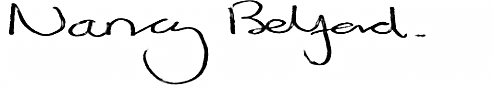 Nancy Belford.